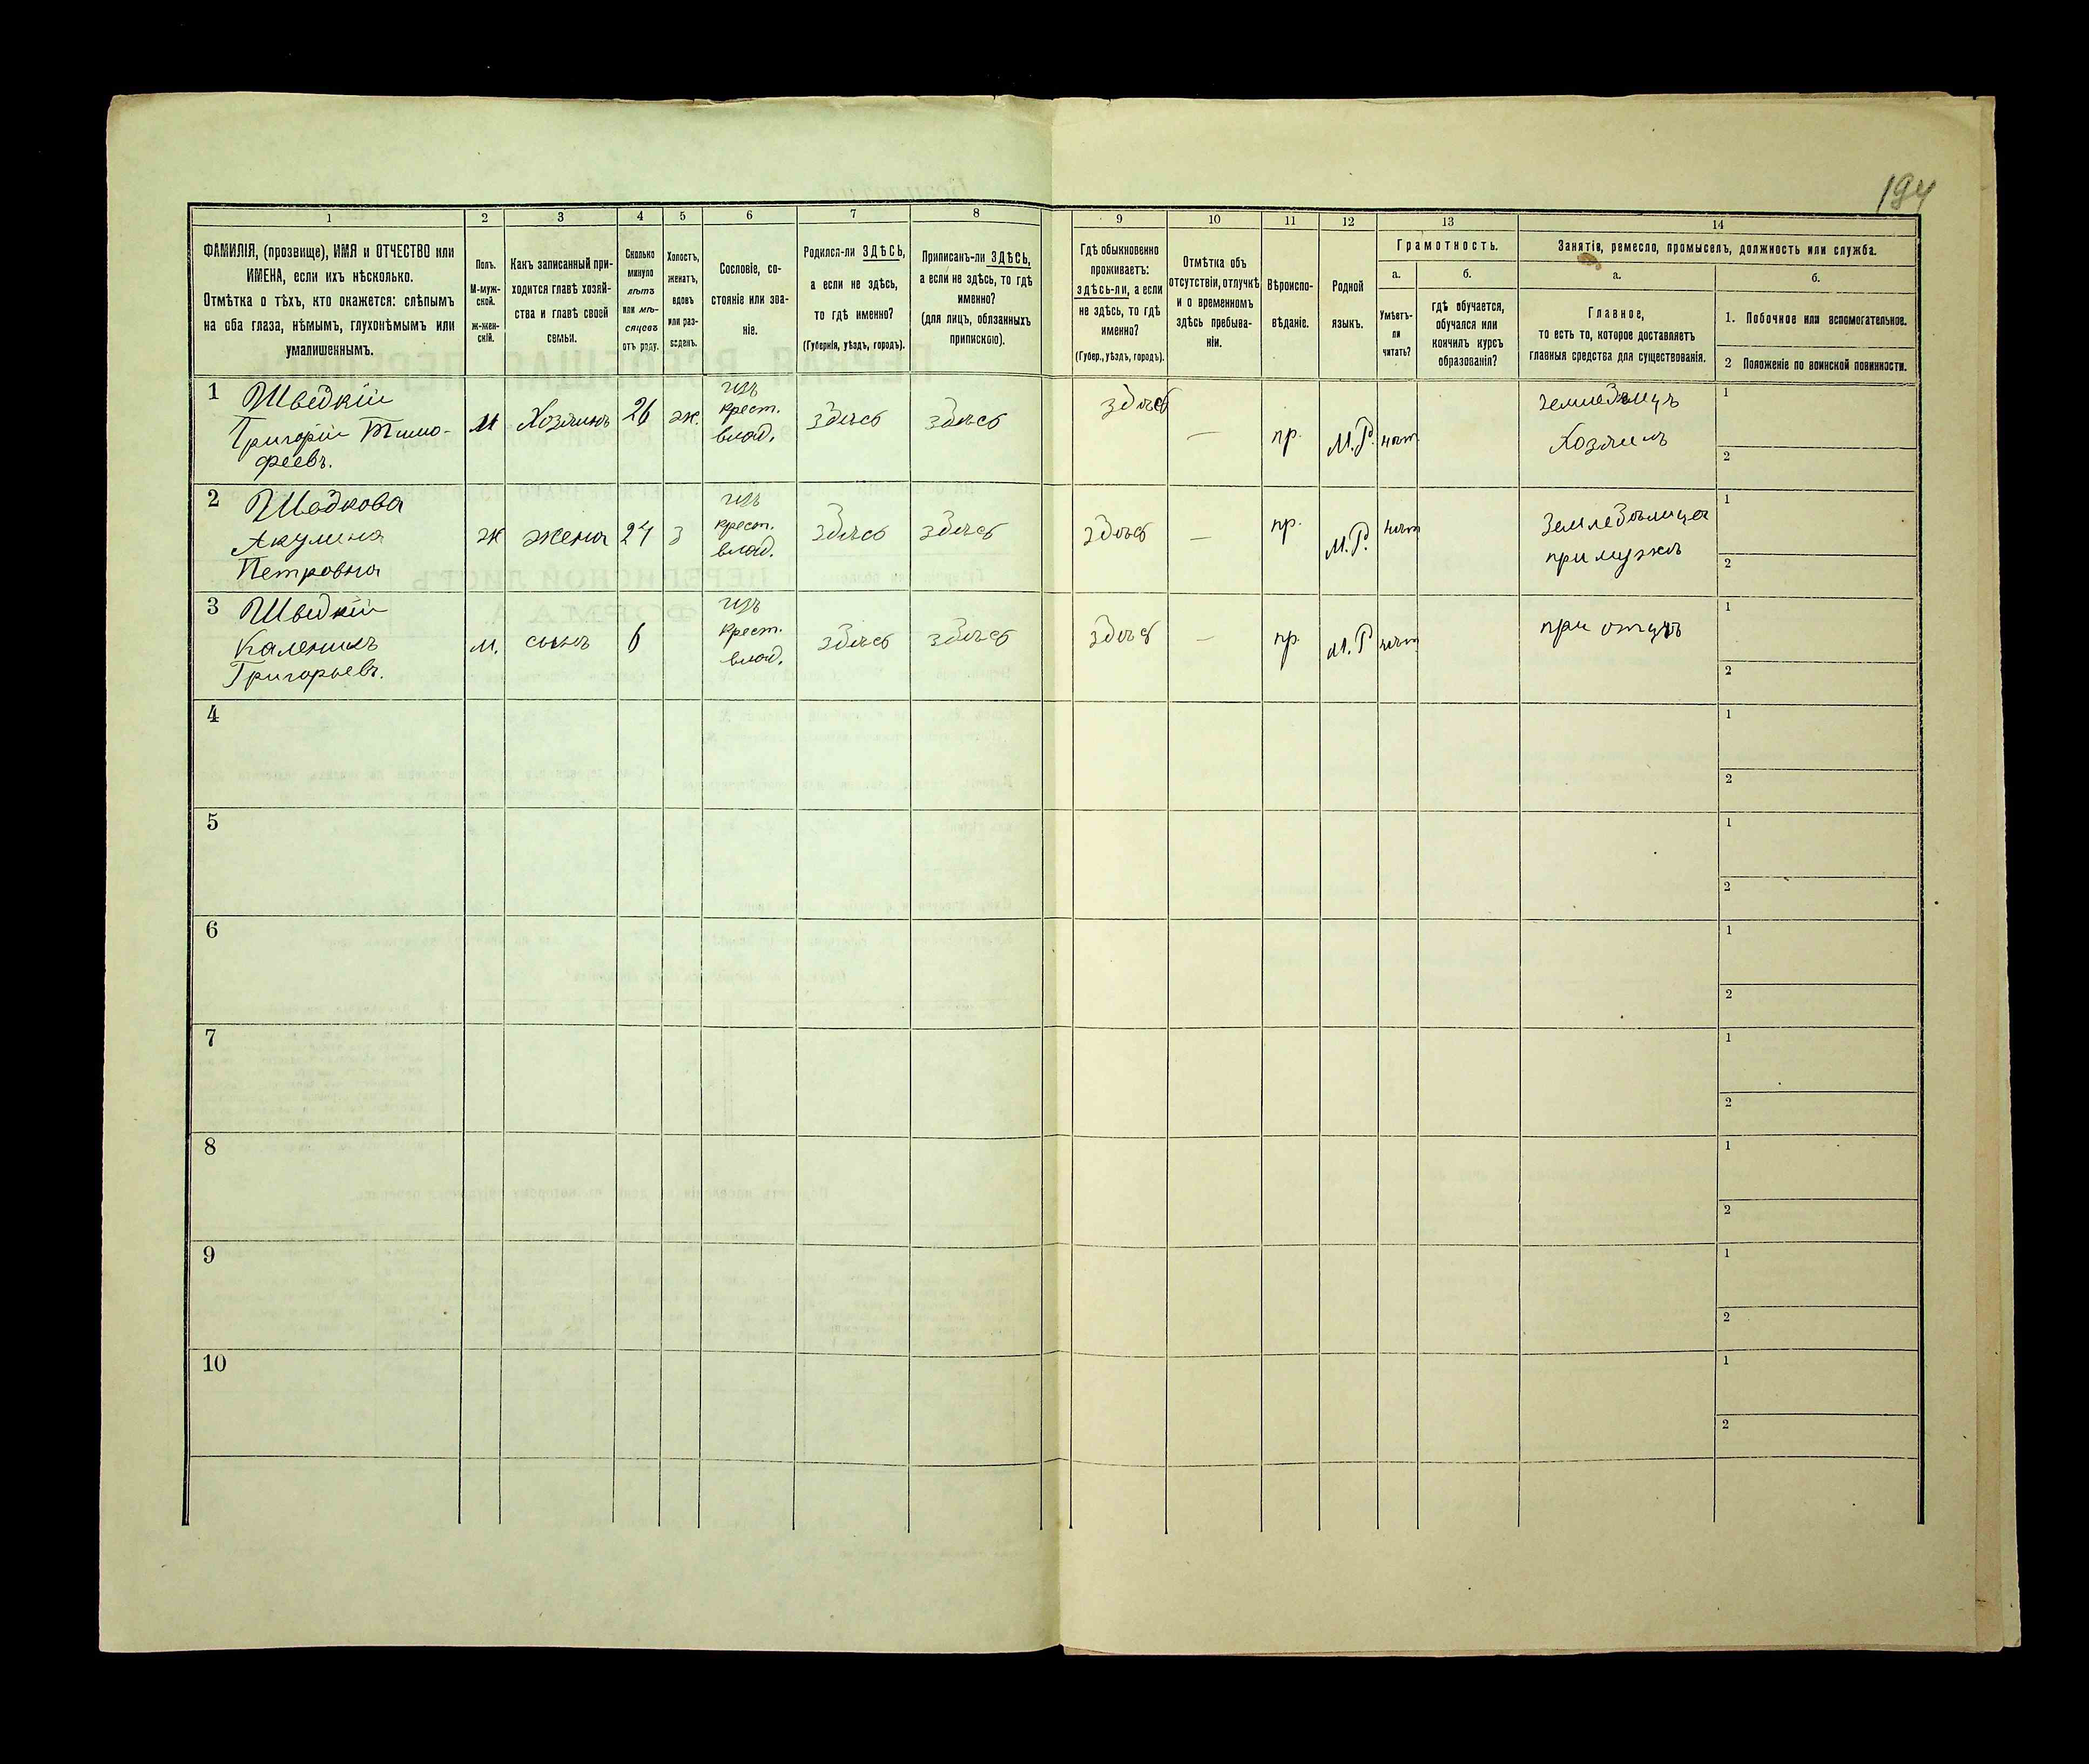 194
1
2
3
4
5
6
7
8
9
10
11
12
13
14
ФАМИЛІЯ, (прозвище), ИМЯ и ОТЧЕСТВО или
ИМЕНА, если ихъ нѣсколько.
Отмѣтка о тѣхъ, кто окажется: слѣпымъ
на оба глаза, нѣмымъ, глухонѣмымъ или
умалишеннымъ.
Полъ.
М-муж-
ской.
ж-жен-
скій.
Какъ записанный при-
ходится главѣ хозяй-
ства и главѣ своей
семьи.
Сколько
минуло
лѣтъ
или мѣ-
сяцевъ
отъ роду.
Холостъ,
женатъ,
вдовъ
или раз-
веденъ.
Сословіе, со-
стояніе или зва-
ніе.
Родился-ли ЗДѢСЬ,
а если не здѣсь,
то гдѣ именно?
(Губернія, уѣздъ, городъ).
Приписанъ-ли ЗДѢСЬ,
а если не здѣсь, то гдѣ
именно?
(для лицъ, обязанныхъ
припискою).
Гдѣ обыкновенно
проживаетъ:
здѣсь-ли, а если
не здѣсь, то гдѣ
именно?
(Губер., уѣздъ, городъ).
Отмѣтка объ
отсутствіи, отлучкѣ
и о временномъ
здѣсь пребыва-
ніи.
Вѣроиспо-
вѣданіе.
Родной
языкъ.
Грамотность.
а.
Умѣетъ-
ли
читать?
б.
гдѣ обучается,
обучался или
кончилъ курсъ
образованія?
Занятіе, ремесло, промыселъ, должность или служба.
а.
Главное,
то есть то, которое доставляетъ
главныя средства для существованія.
б.
1. Побочное или вспомогательное.
2 Положеніе по воинской повинности.
1 Шведкій
Григорій Тимо-
феевъ.
м
Хозяинъ
26
ж.
изъ
крест.
влад.
здѣсь
здѣсь
здѣсь
—
пр.
М.Р.
нѣт
земледѣлецъ
Хозяинъ
1
2
2 Шведкова
Акулина
Петровна
ж
жена
24
з
изъ
крест.
влад.
здѣсь
здѣсь
здѣсь
—
пр.
М.Р.
нѣт
Земледѣлица
при мужѣ
1
2
3 Шведкій
Каленикъ
Григорьевъ.
м.
сынъ
6
изъ
крест.
влад.
здѣсь
здѣсь
здѣсь
—
пр.
М.Р
нѣт
при отцѣ
1
2
4
1
2
5
1
2
6
1
2
7
1
2
8
1
2
9
1
2
10
1
2